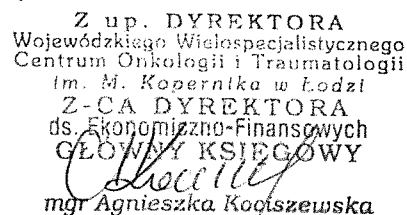 Z up. DYREKTORA
Wojewódzkiego Wielospecjalistycznego
Centrum Onkologii i Traumatologii
im. M. Kopernika w Łodzi
Z-CA DYREKTORA
ds. Ekonomiczno-Finansowych
GŁÓWNY KSIĘGOWY
mgr Agnieszka